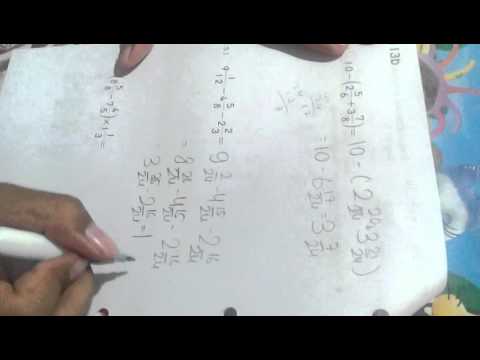 10 − (2 5/6 + 3 7/8) = 10 − (2 20/24 + 3 21/24)
= 10 − 6 17/24 = 3 7/24
9 1/12 − 4 5/8 − 2 2/3 = 9 2/24 − 4 15/24 − 2 16/24
= 8 26/24 − 4 15/24 − 2 16/24
3 35/24 − 2 16/24 = 1
5/8 − 7 4/5) × 1 1/3 =